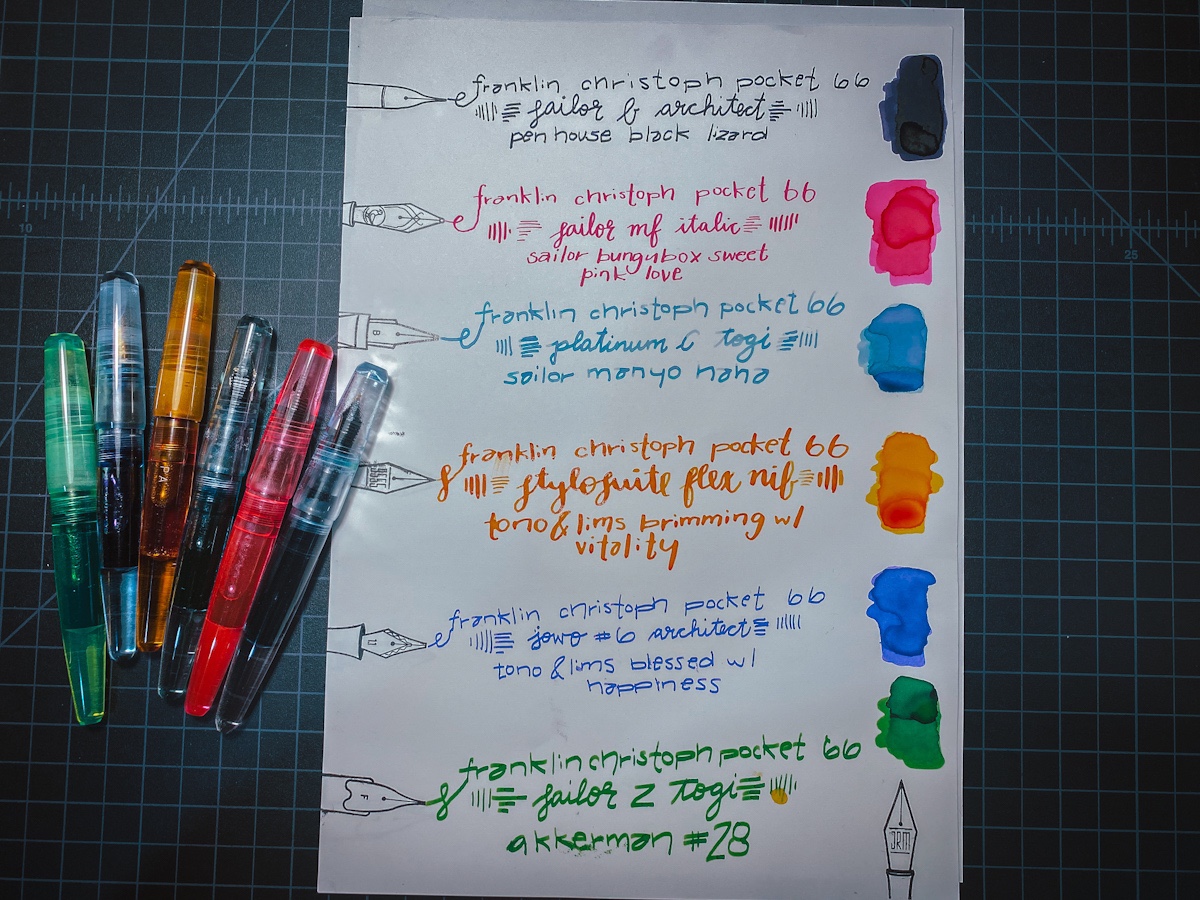 franklin christoph pocket 66
sailor b architect
penhouse black lizard
franklin christoph pocket 66
sailor mf italic
sailor bungubox sweet
pink love
franklin christoph pocket 66
platinum C togi
sailor manyo haha
franklin christoph pocket 66
stylosuite flex nib
tono & lims brimming w/
vitality
franklin christoph pocket 66
jowo #6 architect
tono & lims blessed w/
happiness
franklin christoph pocket 66
sailor Z togi
akkerman #28
JRM
10
25